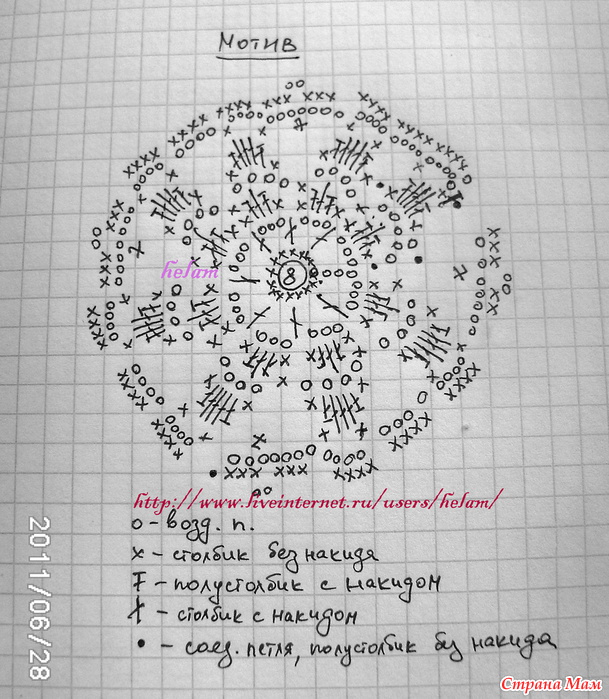 Мотив
8
helam
http://www.liveinternet.ru/users/helam/
o - возд. п.
x - столбик без накида
T - полустолбик с накидом
† - столбик с накидом
• - соед. петля, полустолбик без накида
2011/06/28
Страна Мам